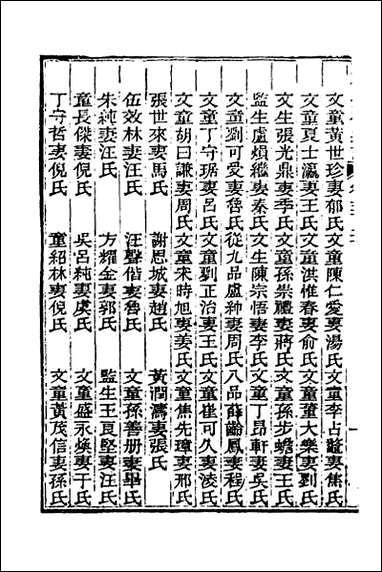 文童黃世珍妻郁氏文童陳仁愛妻湯氏文童李占鼇妻焦氏
文童夏士瀛妻王氏文童洪惟春妻俞氏文童董大樂妻劉氏
文生張光鼎妻季氏文童孫崇禮妻蔣氏文童孫步蟾妻王氏
監生盧煩繼妻秦氏文生陳宗悟妻李氏文童丁昂軒妻吳氏
文童劉可愛妻魯氏從九品盧种妻周氏八品薛齡鳳妻程氏
文童丁守琚妻呂氏文童劉正治妻王氏文童崔可久妻凌氏
文童胡曰謙妻周氏文童宋時旭妻姜氏文童焦先璋妻邢氏
張世來妻馬氏 謝恩城妻趙氏 黃潤濤妻張氏
伍效林妻汪氏 汪聲偕妻魯氏 文童孫善册妻畢氏
朱純妻汪氏 方耀金妻郭氏 監生王良堅妻汪氏
童長傑妻倪氏 吳呂純妻虞氏 文童盛永煥妻干氏
丁守哲妻倪氏 童紹林妻倪氏 文童黃茂信妻孫氏